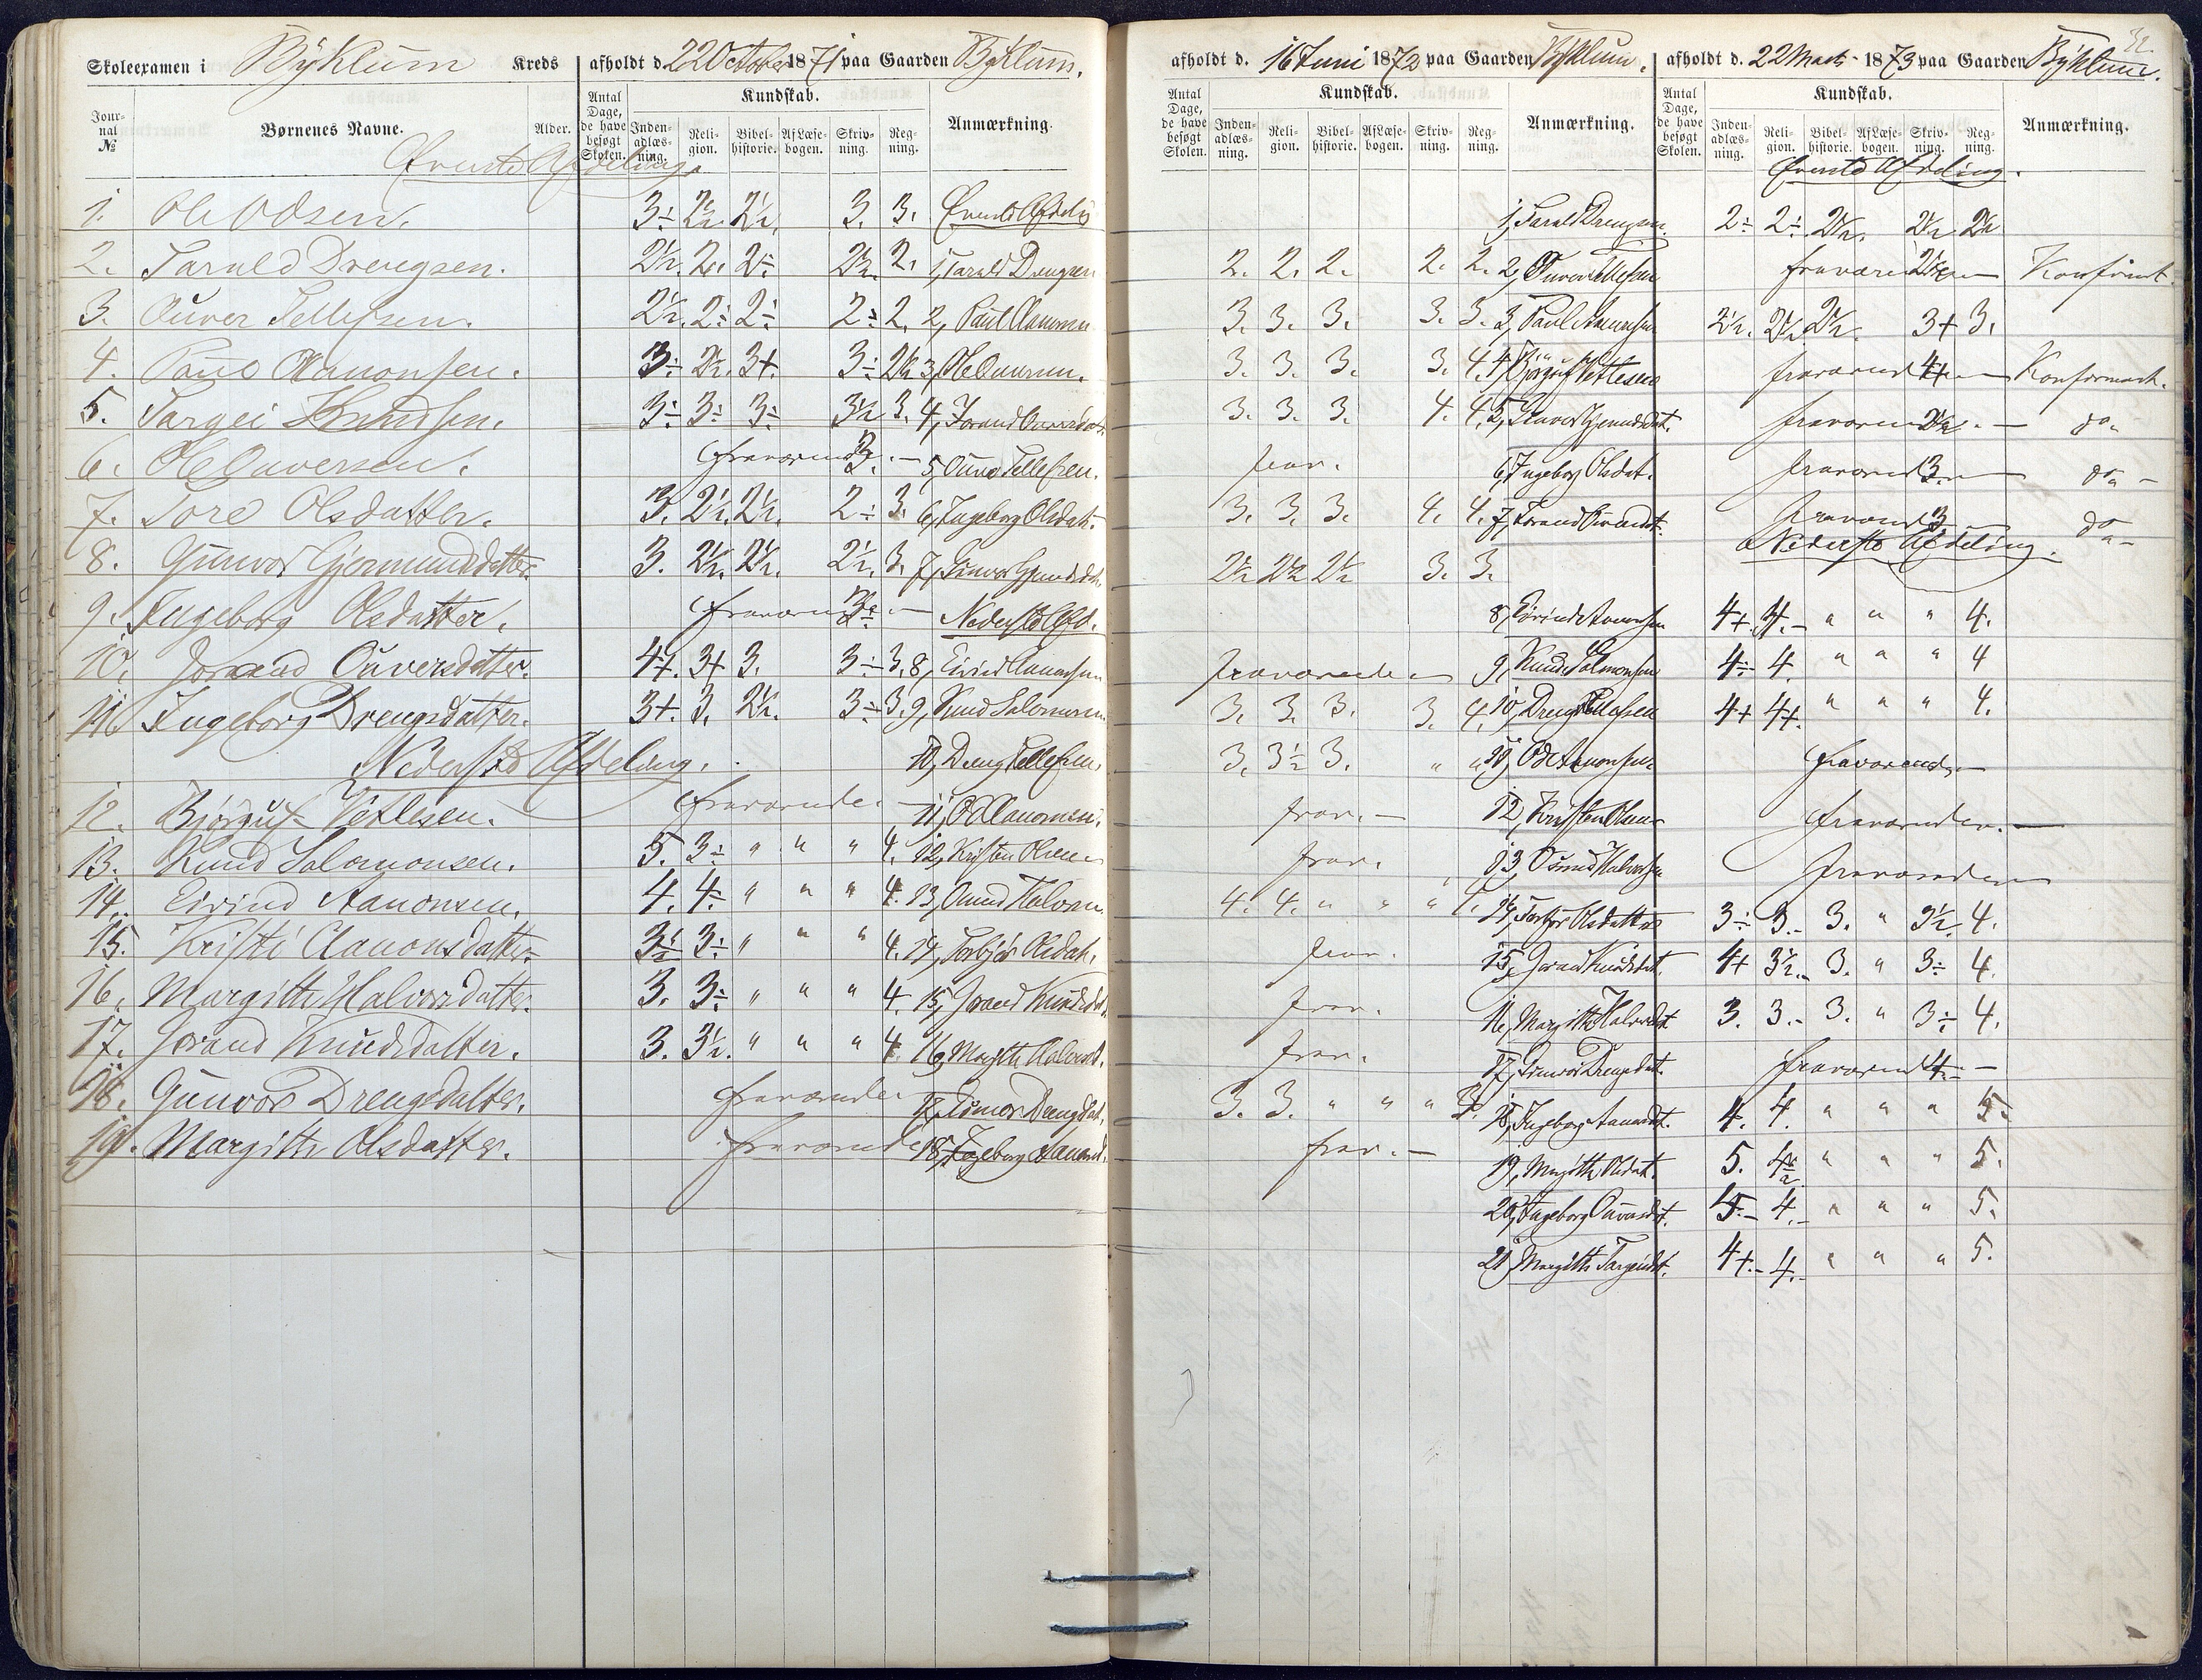 Skoleexamen i Byklum Kreds afholdt d. 22 October 1871 paa Gaarden Byklum.
Jour-nal № Børnenes Navne. Alder. Antal Dage, de have besøgt Skolen. Kundskab. Inden-adlæs-ning. Reli-gion. Bibel-historie. Af Læse-bogen. Skriv-ning. Reg-ning. Anmærkning.
Øverste Afdeling.
1. Ole Odsen. 3÷ 2½ 2½. 3. 3. Øverste Afdeling
2. Tarald Drengsen. 2½. 2. 2÷ 2½. 2. 1, Tarald Drengsen
3. Ouver Tellefsen. 2½. 2÷ 2÷ 2÷ 2. 2, Paul Aanonsen
4. Paul Aanonsen. 3÷ 2½. 3+. 3÷ 2½ 3, Ole Ouversen.
5. Targei Knudsen. 3÷ 3÷ 3÷ 3½ 3. 4, Jorand Ouversdat.
6. Ole Ouversen. fraværende 3. 5, Ouver Tellefsen.
7. Tore Olsdatter. 3. 2½. 2½. 2÷ 3. 6, Ingeborg Olsdat.
8. Gunvor Gjermundsdatter. 3. 2½. 2½. 2½. 3. 7, Gunvor Gjmundsdat.
9. Ingeborg Olsdatter. fraværende Nederste Afd.
10. Jorand Ouversdatter. 4+. 3+ 3. 3÷ 3. 8, Eivind Aanonsen
11. Ingeborg Drengsdatter. 3+. 3. 2½. 3÷ 3. 9, Knud Salomonsen
Nederste Afdeling. 10, Dreng Tellefsen
12. Bjørguf Vetlesen. fraværende 11, Od Aanonsen.
13. Knud Salomonsen. 5. 3÷ " " " 4. 12, Kristen Olsen
14. Eivind Aanonsen. 4. 4÷ " " " 4. 13, Osmund Halvorsen
15. Kristi Aanonsdatter. 3½ 3÷ " " " 4. 14, Torbjør Olsdat.
16. Margith Halvorsdatter. 3. 3÷ " " " 4. 15, Jorand Knudsdat.
17. Jorand Knudsdatter. 3. 3½. " " " 4. 16, Margith Halvorsd.
18. Gunvor Drengsdatter. fraværende 17, Gunvor Drengsdat.
19. Margith Olsdatter. fraværende 18, Ingeborg Aanonsd.
afholdt d. 16 Juni 1872 paa Gaarden Byklum.
Antal Dage, de have besøgt Skolen. Kundskab. Inden-adlæs-ning. Reli-gion. Bibel-historie. Af Læse-bogen. Skriv-ning. Reg-ning. Anmærkning.
1, Tarald Drengsen.
2. 2. 2. 2. 2. 2, Ouver Tellefsen
3. 3. 3. 3. 3. 3, Paul Aanonsen
3. 3. 3. 3. 4. 4, Bjørguf Vetlesen
3. 3. 3. 4. 4. 5, Gunvor Gjermundsdat.
frav. 6, Ingeborg Olsdat.
3. 3. 3. 4. 4. 7, Jorand Ouversdt.
2½ 2½ 2½ 3. 3.
8, Eivind Aanonsen
fraværende 9, Knud Salomonsen
3. 3. 3. 3. 4. 10, Dreng Tellefsen
3. 3½ 3. " " 11, Od Aanonsen
frav. 12, Kristen Olsen
frav. 13, Osmund Halvorsen
4. 4. " " " 4. 14, Torbjør Olsdatter
frav. 15, Jorand Knudsdat.
frav. 16, Margith Halvorsdt.
frav. 17, Gunvor Drengsdat.
3. 3. " " " 3. 18, Ingeborg Aanonsdt.
frav. 19, Margith Olsdat.
20, Ingeborg Ouversdat.
21, Margith Targeisdt.
afholdt d. 22 Marts 1873 paa Gaarden Byklum.
32.
Antal Dage, de have besøgt Skolen. Kundskab. Inden-adlæs-ning. Reli-gion. Bibel-historie. Af Læse-bogen. Skriv-ning. Reg-ning. Anmærkning.
Øverste Afdeling.
2÷ 2÷ 2½. 2½ 2½
fraværende 2½ Konfirmt.
2½. 2½. 2½. 3+ 3.
fraværende 4+ Konfirmert.
fraværende 2½. do.
fraværende 3. do
fraværende 3 do
Nederste Afdeling.
4+. 4. " " " 4.
4÷ 4. " " " 4
4+ 4+. " " " 4.
fraværende
fraværende.
fraværende
3÷ 3. 3. " 3½. 4.
4+ 3½. 3. " 3÷ 4.
3. 3. 3. " 3÷ 4.
fraværende 4
4. 4. " " " 5.
5. 4½ " " " 5.
5. 4. " " " 5.
4+. 4. " " " 5.